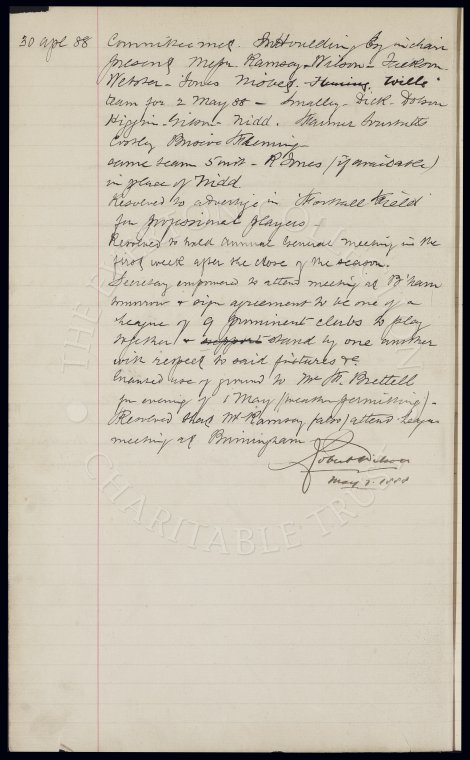 30 Apl 88 Committee met. Jn Houlding Esq in chair
present Messrs Ramsay - Wilson - Jackson
Webster - Jones Fleming Wills
team for 2 May 88 - Smalley - Dick. Dobson
Higgins - Gibson - Nidd. Farmer
Costley Briscoe Fleming
same team 5 inst - R Jones (if available)
in place of Nidd.
Resolved to advertise in Football Field
for professional players
Resolved to hold Annual General meeting in the
first week after the close of the season.
Secretary empowered to attend meeting at B'ham
tomorrow & sign agreement to be one of a
League of 9 prominent clubs to play
together & support stand by one another
with respect to said fixtures &c
Granted use of ground to Mr Brettell
for evening of 1 May (weather permitting) -
Resolved that Mr Ramsay (also) attend League
meeting at Birmingham
Robert Wilson
May 1888
THE
CHARITABLE TRUST